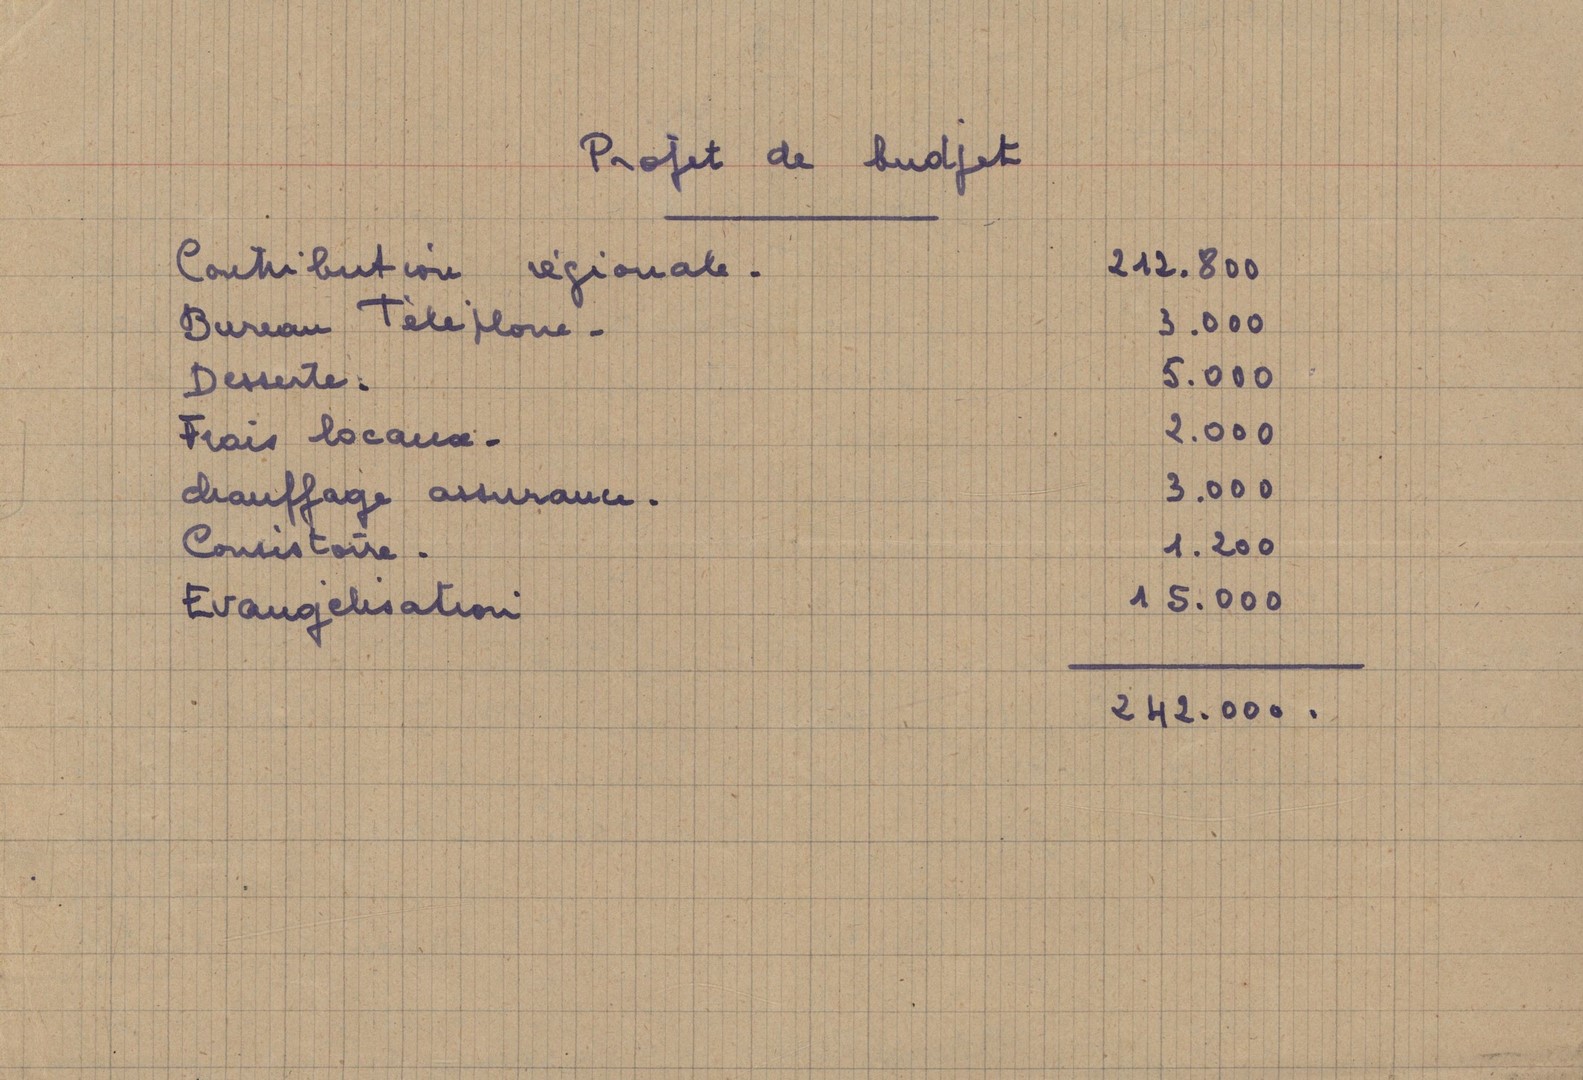 Projet de budjet
Contribution régionale. 212.800
Bureau Téléphone- 3.000
Desserte. 5.000
Frais locaux- 2.000
chauffage assurance. 3.000
Consistoire. 1.200
Evangélisation 15.000
242.000.